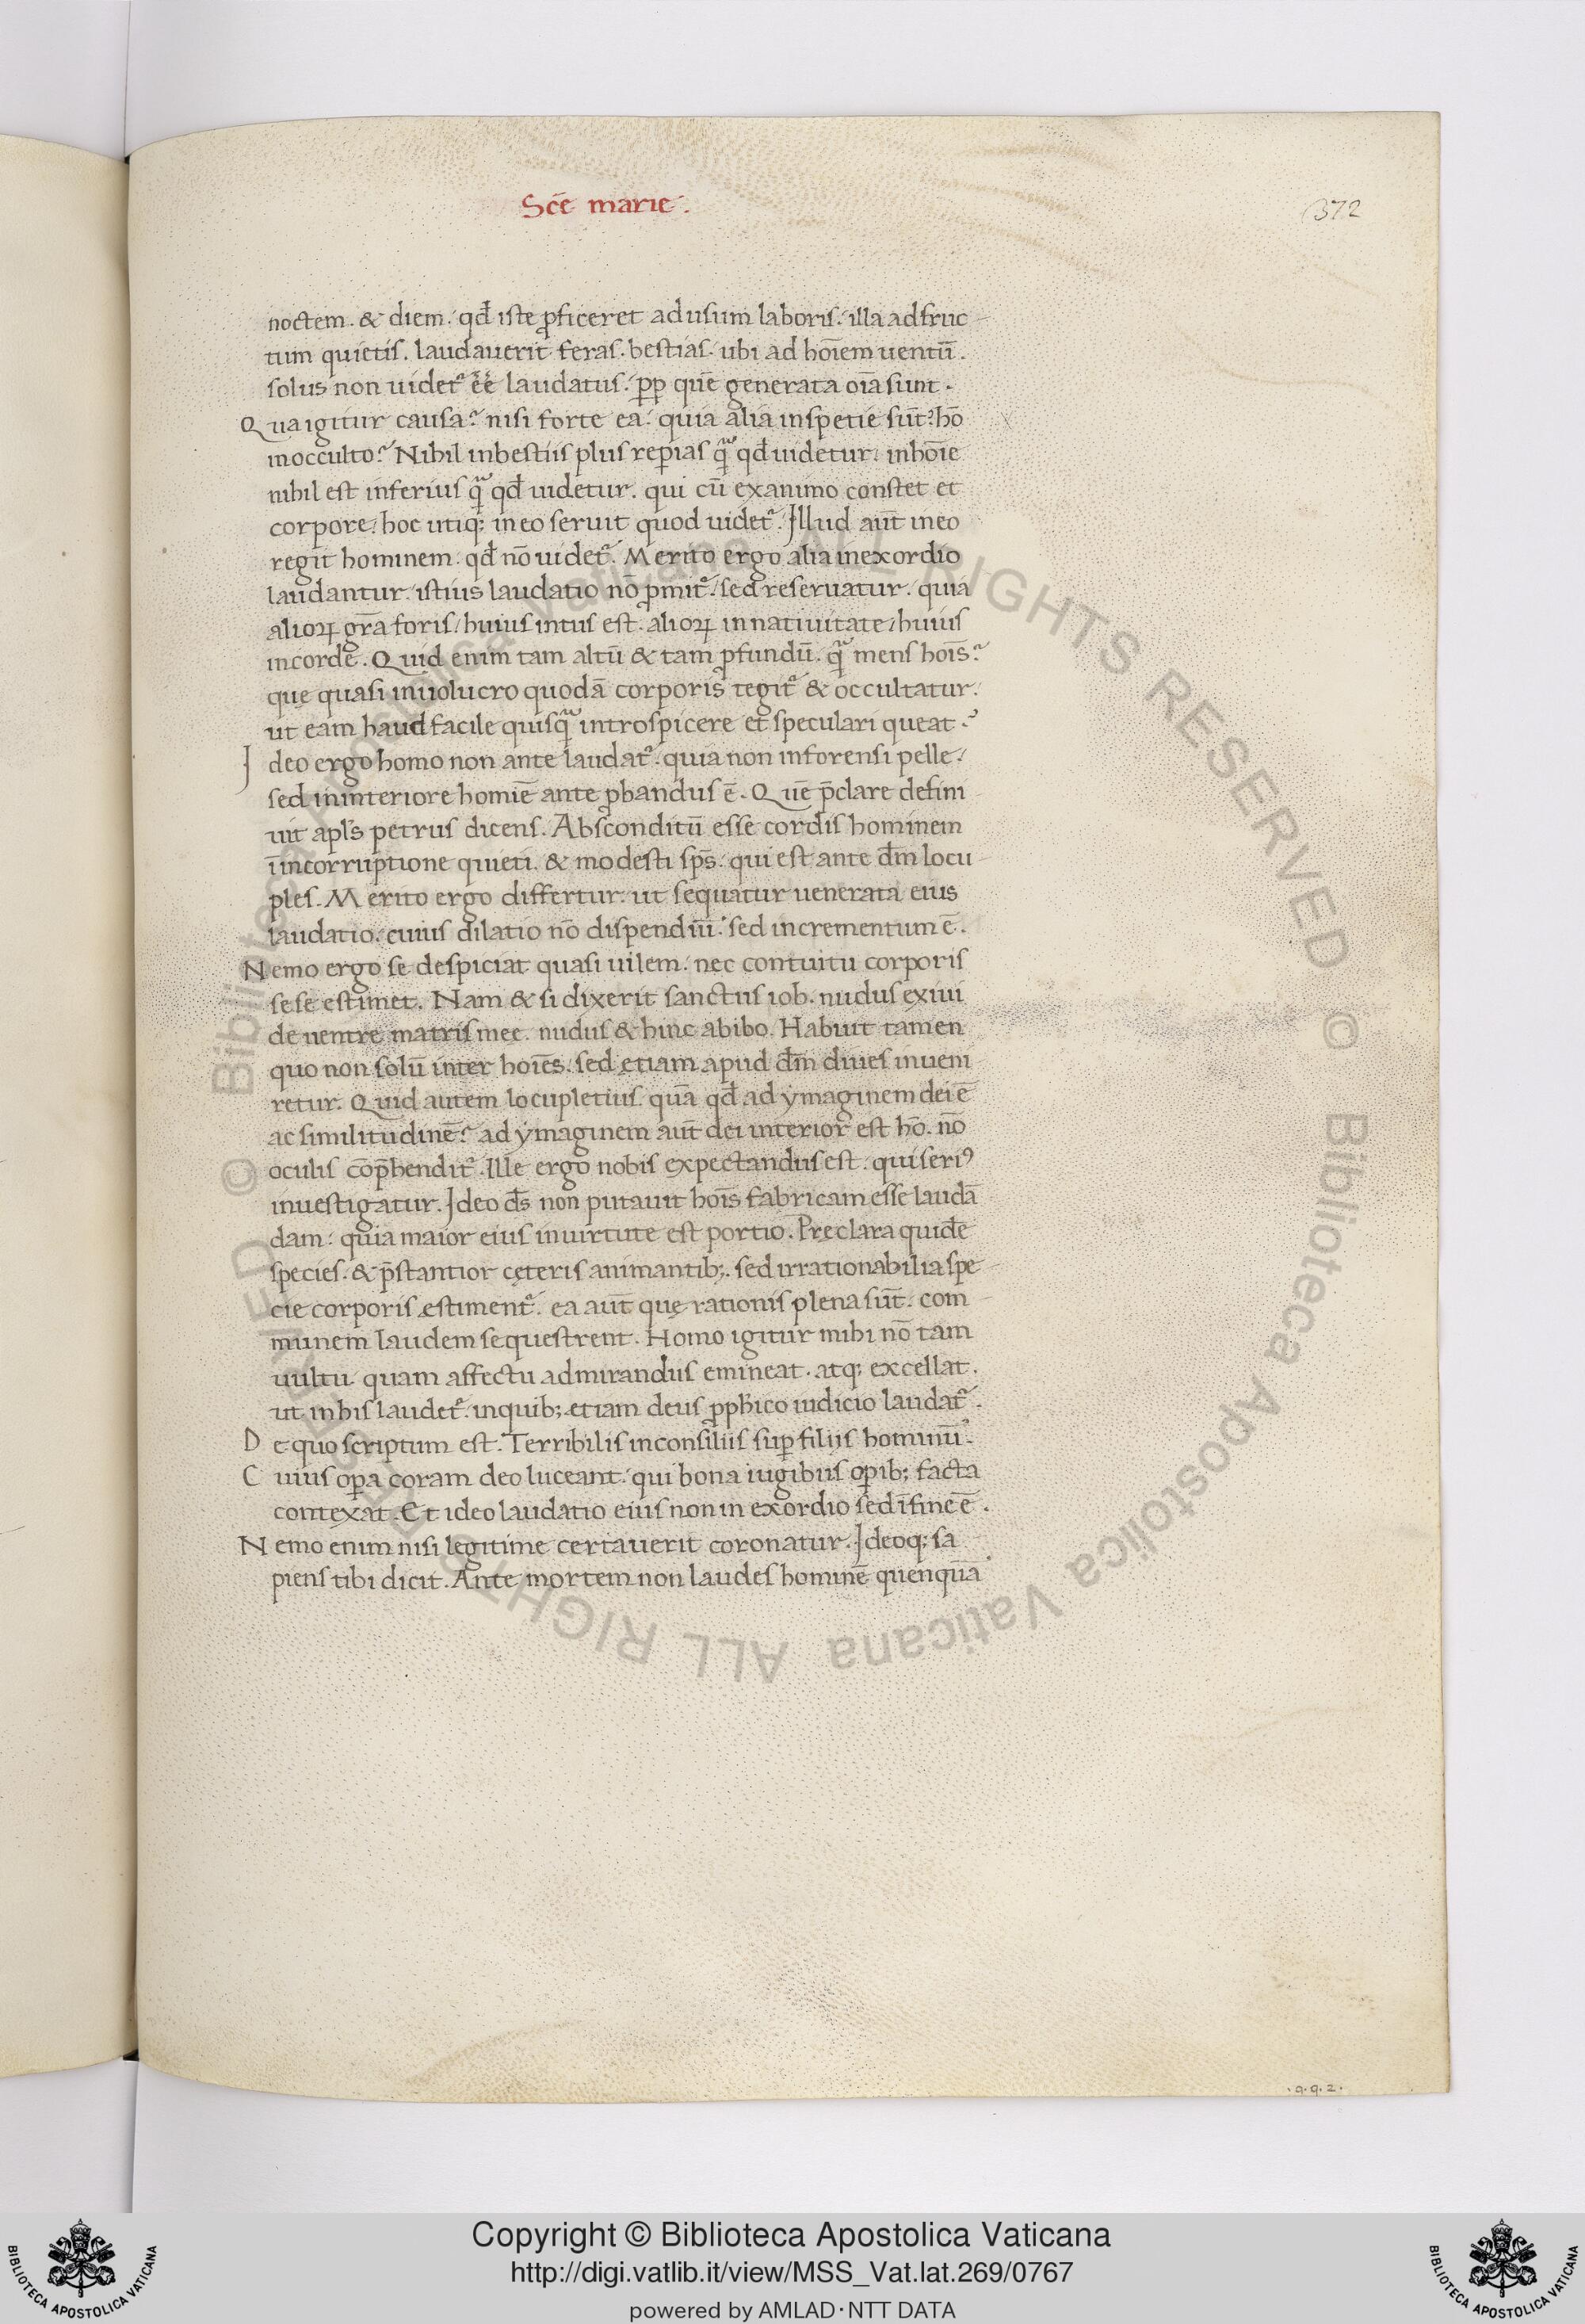 Sc̄e marie.
372
noctem. & diem. qđ iste ꝓficeret ad usum laboris. illa ad fruc-
tum quietis. laudauerit feras. bestias. ubi ad hoīem uentū.
solus non uidet᷑ ēē laudatus. ꝓp quē generata oīa sunt.
Qua igitur causa? nisi forte ea. quia alia in spetie sūt? hō
in occulto? Nihil in bestiis plus reꝑias q̄ qđ uidetur. in hoīe
nihil est inferius q̄ qđ uidetur. qui cū ex animo constet et
corpore. hoc utiq; in eo seruit quod uidet᷑. Illud aūt in eo
regit hominem. qđ nō uidet᷑. Merito ergo alia in exordio
laudantur. istius laudatio nō p̄mit᷑. sed reseruatur. quia
alioꝝ gr̄a foris. huius intus est. alioꝝ in natiuitate. huius
in corde. Quid enim tam altū & tam ꝓfundū. q̄ mens hoīs?
quę quasi inuolucro quodā corporis tegit᷑ & occultatur.
ut eam haud facile quisq̄ introspicere et speculari queat?
Ideo ergo homo non ante laudat᷑. quia non in forensi pelle.
sed in interiore homīe ante ꝓbandus ē. Quē p̄clare defini
uit apl's petrus dicens. Absconditū esse cordis hominem
ī incorruptione quieti. & modesti sp̄s. qui est ante dm̄ locu-
ples. Merito ergo differtur. ut sequatur uenerata eius
laudatio. cuius dilatio nō dispendiū. sed incrementum ē.
Nemo ergo se despiciat quasi uilem. nec contuitu corporis
sese estimet. Nam & si dixerit sanctus iob. nudus exiui
de uentre matris meę. nudus & hinc abibo. Habuit tamen
quo non solū inter hoīes. sed etiam apud dm̄ diues inueni-
retur. Quid autem locupletius. quā qđ ad ymaginem dei ē
ac similitudinē? ad ymaginem aūt dei interior est hō. nō
oculis cōp̄hendit᷑. Ille ergo nobis expectandus est. qui seri⁹
inuestigatur. Ideo ds̄ non putauit hoīs fabricam esse laudā
dam. quia maior eius in uirtute est portio. Pręclara quidē
species. & p̄stantior cęteris animantib;. sed irrationabilia spe-
cie corporis estiment᷑. ea aūt quę rationis plena sūt. com-
munem laudem sequestrent. Homo igitur mihi nō tam
uultu quam affectu admirandus emineat. atq; excellat.
ut in his laudet᷑. in quib; etiam deus ꝓph̄ico iudicio laudat᷑.
De quo scriptum est. Terribilis in consiliis suꝑ filiis hominū.
Cuius oꝑa coram deo luceant. qui bona iugibus oꝑib; facta
contexat. Et ideo laudatio eius non in exordio sed ī fine ē.
Nemo enim nisi legitime certauerit coronatur. Ideoq; sa
piens tibi dicit. Ante mortem non laudes hominē quenquā
.q.q.2.
© Biblioteca Apostolica Vaticana ALL RIGHTS RESERVED © Biblioteca Apostolica Vaticana ALL RIGHTS RESERVED
BIBLIOTECA APOSTOLICA VATICANA
Copyright © Biblioteca Apostolica Vaticana
http://digi.vatlib.it/view/MSS_Vat.lat.269/0767
powered by AMLAD·NTT DATA
BIBLIOTECA APOSTOLICA VATICANA